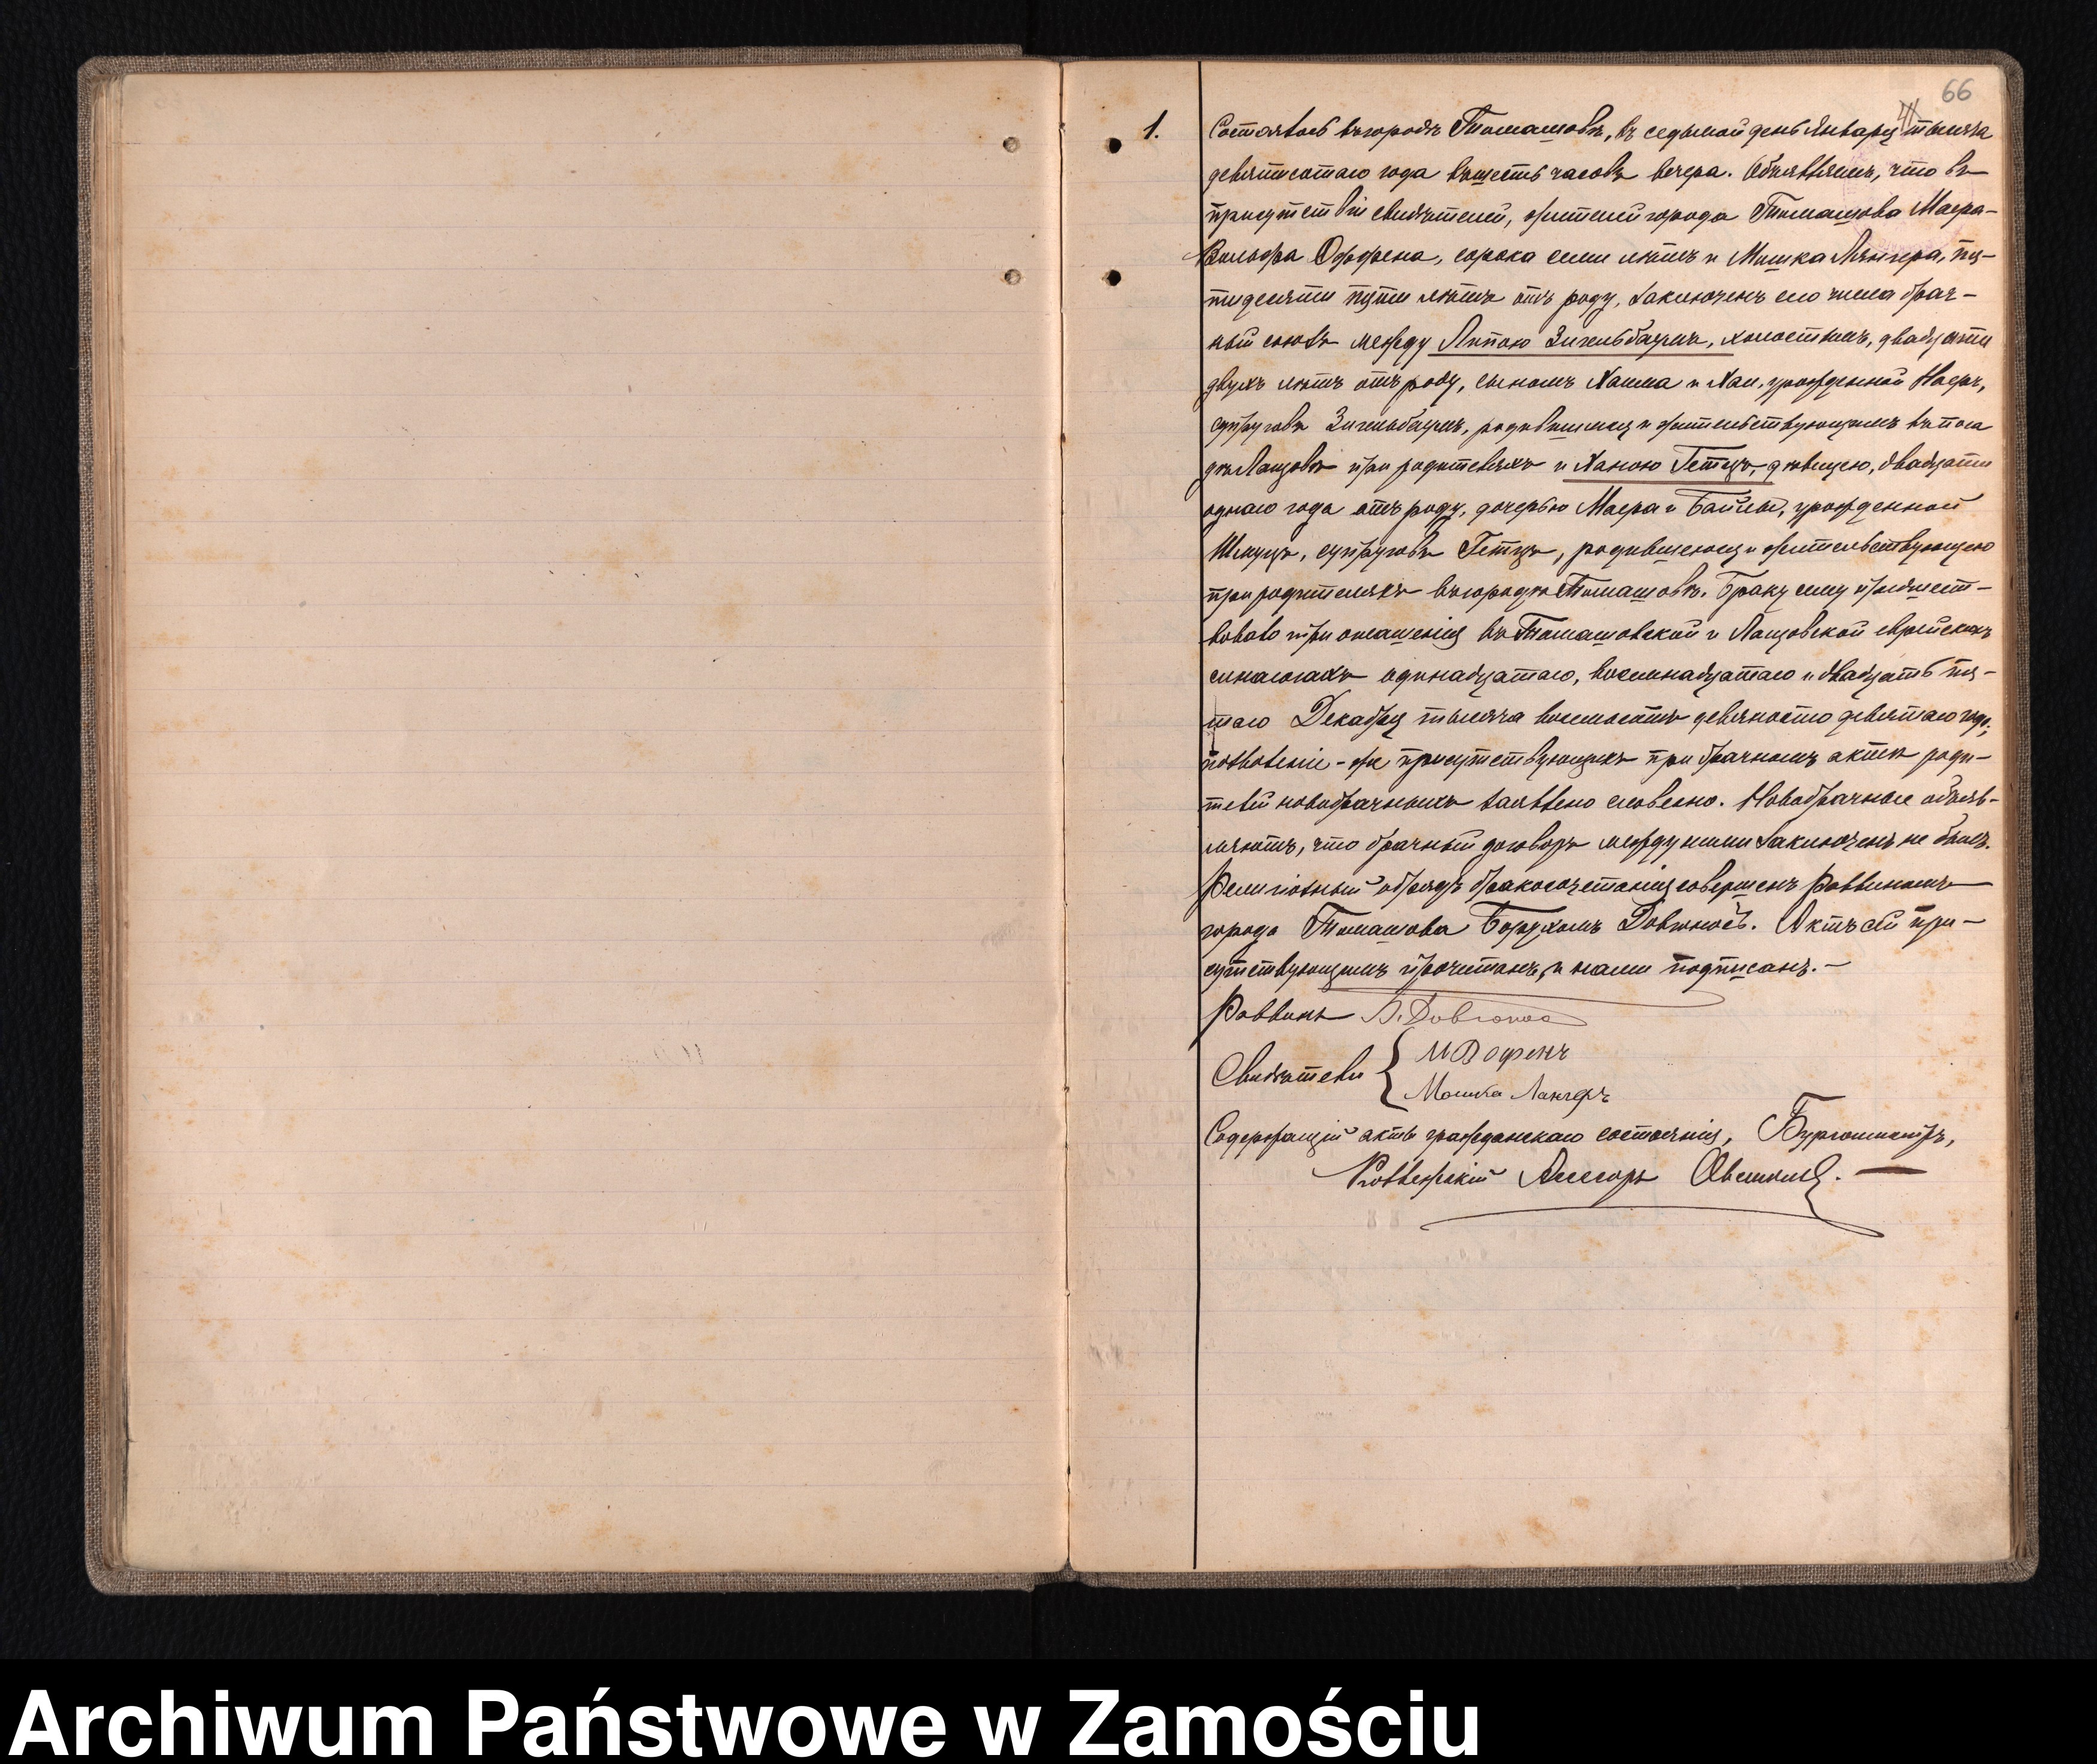 66
1. Состоялось въ городѣ Томашовѣ, въ седьмой день Января тысяча
девятисотаго года въ шесть часовъ вечера. Объявляемъ, что въ
присутствіи свидѣтелей, жителей города Томашова Маера-
Вольфа Оффена, сорока семи лѣтъ и Мошка Лянгера, пя-
тидесяти пяти лѣтъ отъ роду, заключенъ сего числа брач-
ный союзъ между Липою Зигельбаумъ, холостымъ, двадцати
двухъ лѣтъ отъ роду, сыномъ Хаима и Хаи, урожденной
супруговъ Зигельбаумъ, родившимся и жительствующимъ въ поса
дѣ Лащовѣ при родителяхъ и Ханою Гетцъ, дѣвицею, двадцати
одного года отъ роду, дочерью Маера и Байлы, урожденной
Шмуцъ, супруговъ Гетцъ, родившеюся и жительствующею
при родителяхъ въ городѣ Томашовѣ. Браку сему предшест-
вовало три оглашенія въ Томашовской и Лащовской еврейскихъ
синагогахъ одинадцатаго, восемнадцатаго и двадцать пя-
таго Декабря тысяча восемьсотъ девяносто девятаго года;
позволеніе-же присутствующихъ при брачномъ актѣ роди-
телей новобрачныхъ заявлено словесно. Новобрачные объяв-
ляютъ, что брачный договоръ между ними заключенъ не былъ.
Религіозный обрядъ бракосочетанія совершенъ Раввиномъ
города Томашова Борухомъ Довгоносъ. Актъ сей при-
сутствующимъ прочитанъ, и нами подписанъ.-
Раввинъ B. Dovgonos
Свидѣтели { М В Офенъ
Мошка Лангеръ
Содержащій акты гражданскаго состоянія, Бургомистръ,
Коллежскій Асесоръ
Archiwum Państwowe w Zamościu